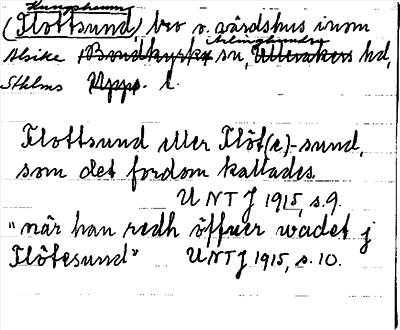 Kungshamn
(Flottsund), bro o. värdshus inom
Ärlinghundra
Alsike Bondkyrko sn, Ulleråkers hd,
Sthlms Upps. l.
Flottsund eller Flöt(e)-sund,
som det fordom kallades.
UNTJ 1915, s. 9.
"när han redh öffuer wadet j
Flötesund" UNTJ 1915, s. 10.